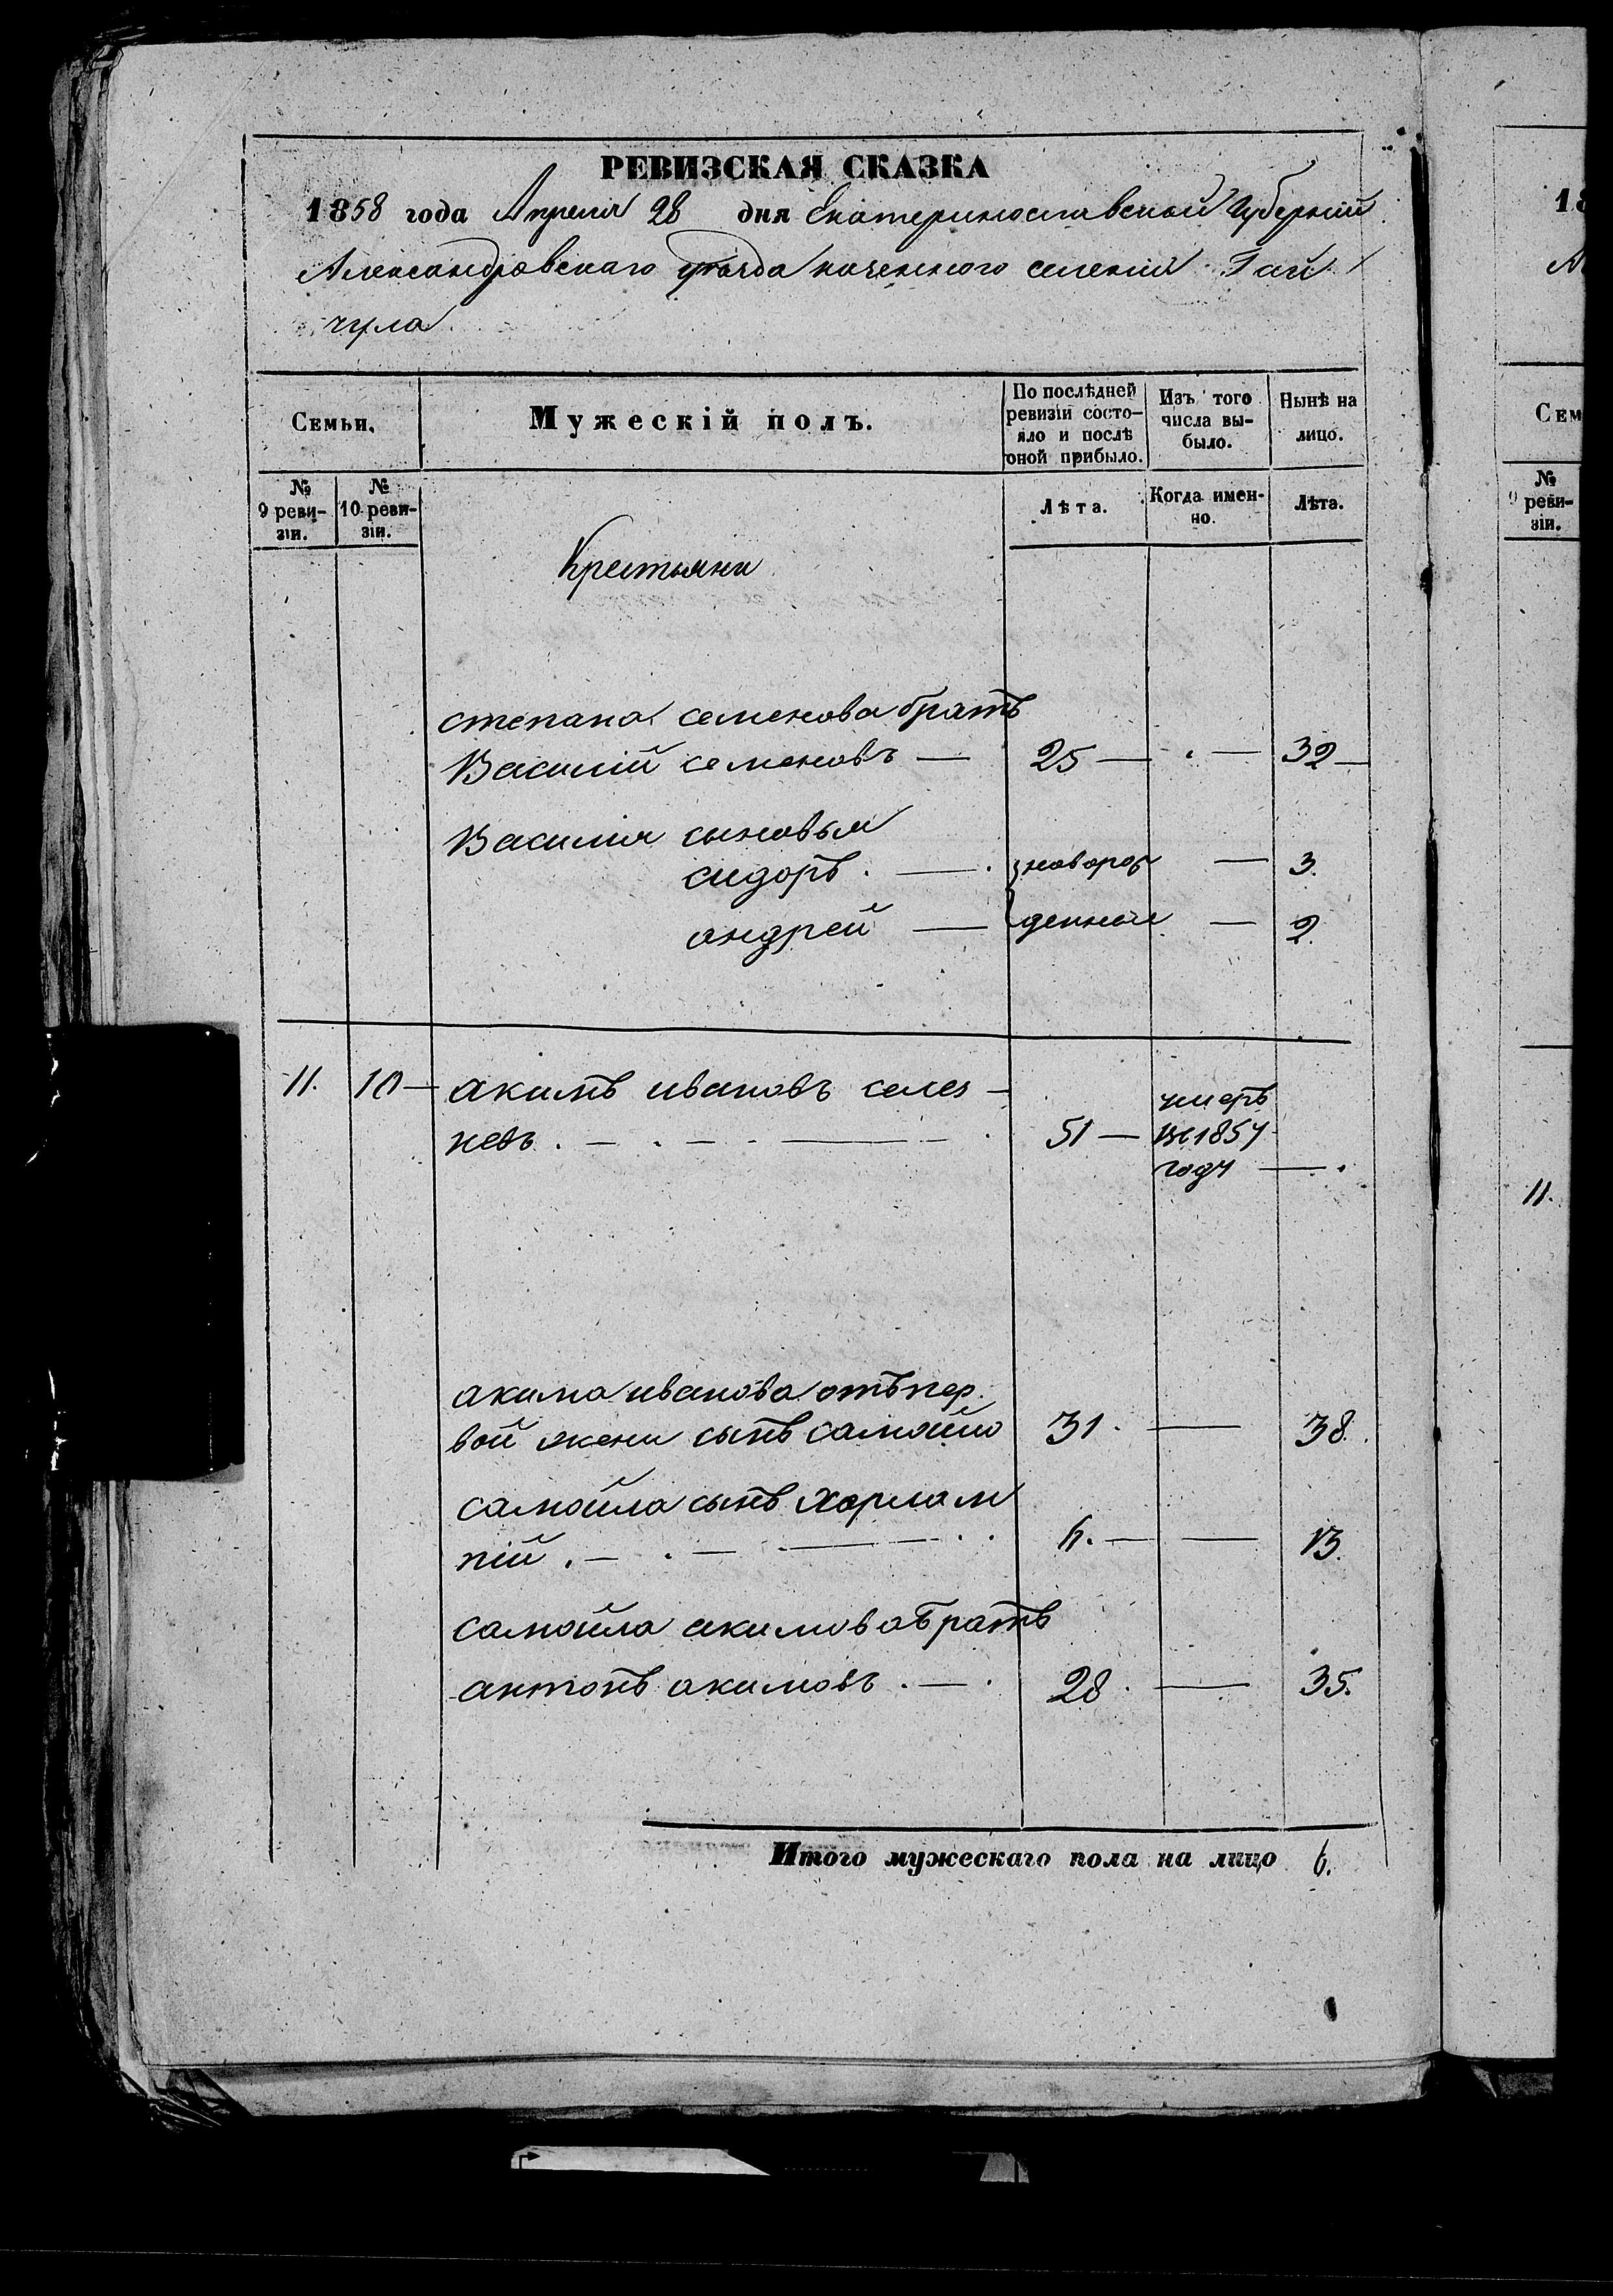 РЕВИЗСКАЯ СКАЗКА
1858 года Апреля 28 дня Екатеринославской Губерніи
Александровскаго уѣзда казенного селенія Гай
чула
Семьи.
Мужескій полъ.
По послѣдней ревизіи состо-яло и послѣ оной прибыло.
Изъ того числа вы-было.
Нынѣ на лицо.
№ 9 реви-зіи.
№ 10 реви-зіи.
Лѣта.
Когда имен-но.
Лѣта.
Крестьяни
степана семенова братъ
Василій семеновъ — 25 — . — 32 —
Василия сыновья
сидоръ . — . новорож — 3.
андрей — денные — 2.
11. 10 — акимъ ивановъ селез —
невъ . — . — . — . 51 — умеръ
въ 1854
году — .
акима иванова отъ пер
вой жени сынъ самойло 31. — 38.
самойла сынъ харлам
пій . — . — — . . 6. — — 13.
самойла акимова братъ
антонъ акимовъ . — . 28. — 35.
Итого мужескаго пола на лицо 6.
18
Сем
№
9 реви-
зіи.
11.